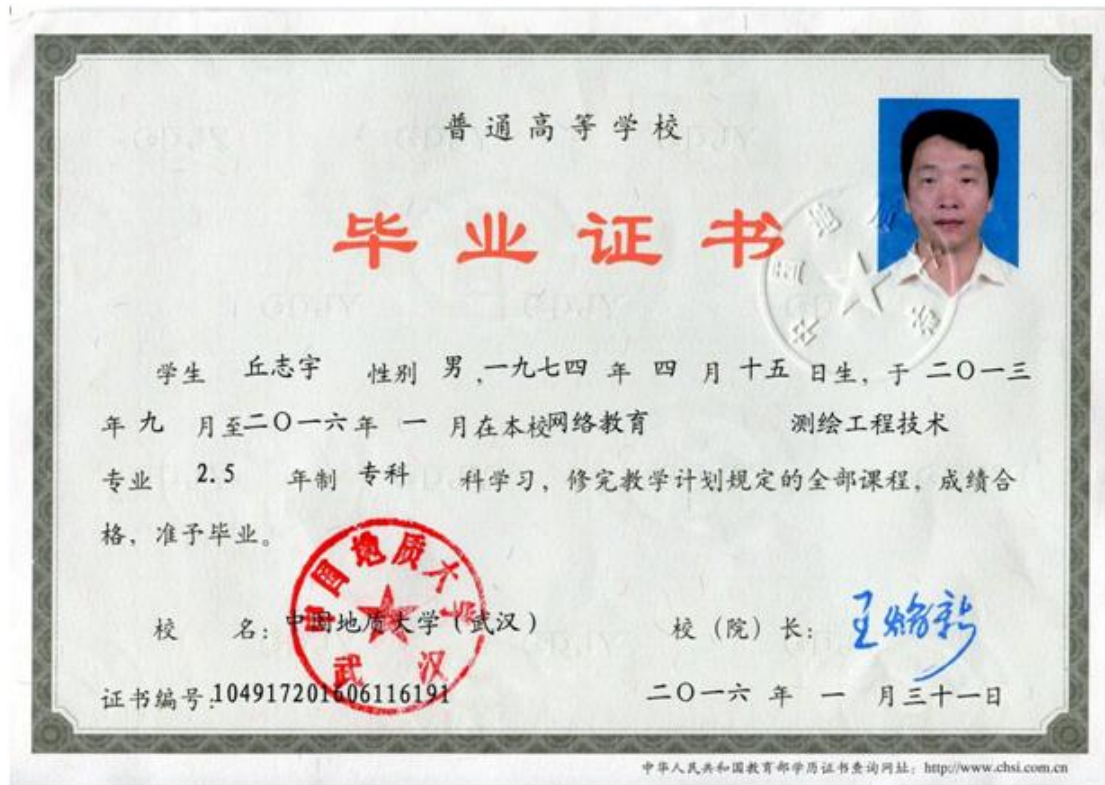 普通高等学校
毕业证书
学生 丘志宇 性别 男,一九七四 年 四 月 十五 日生,于 二〇一三
年 九 月至二〇一六年 一 月在本校网络教育 测绘工程技术
专业 2.5 年制 专科 科学习,修完教学计划规定的全部课程,成绩合
格,准予毕业。
中国地质大学
武汉
校 名:中国地质大学(武汉) 校(院)长:
证书编号:104917201606116191 二〇一六 年 一 月三十一日
中华人民共和国教育部学历证书查询网址:http://www.chsi.com.cn